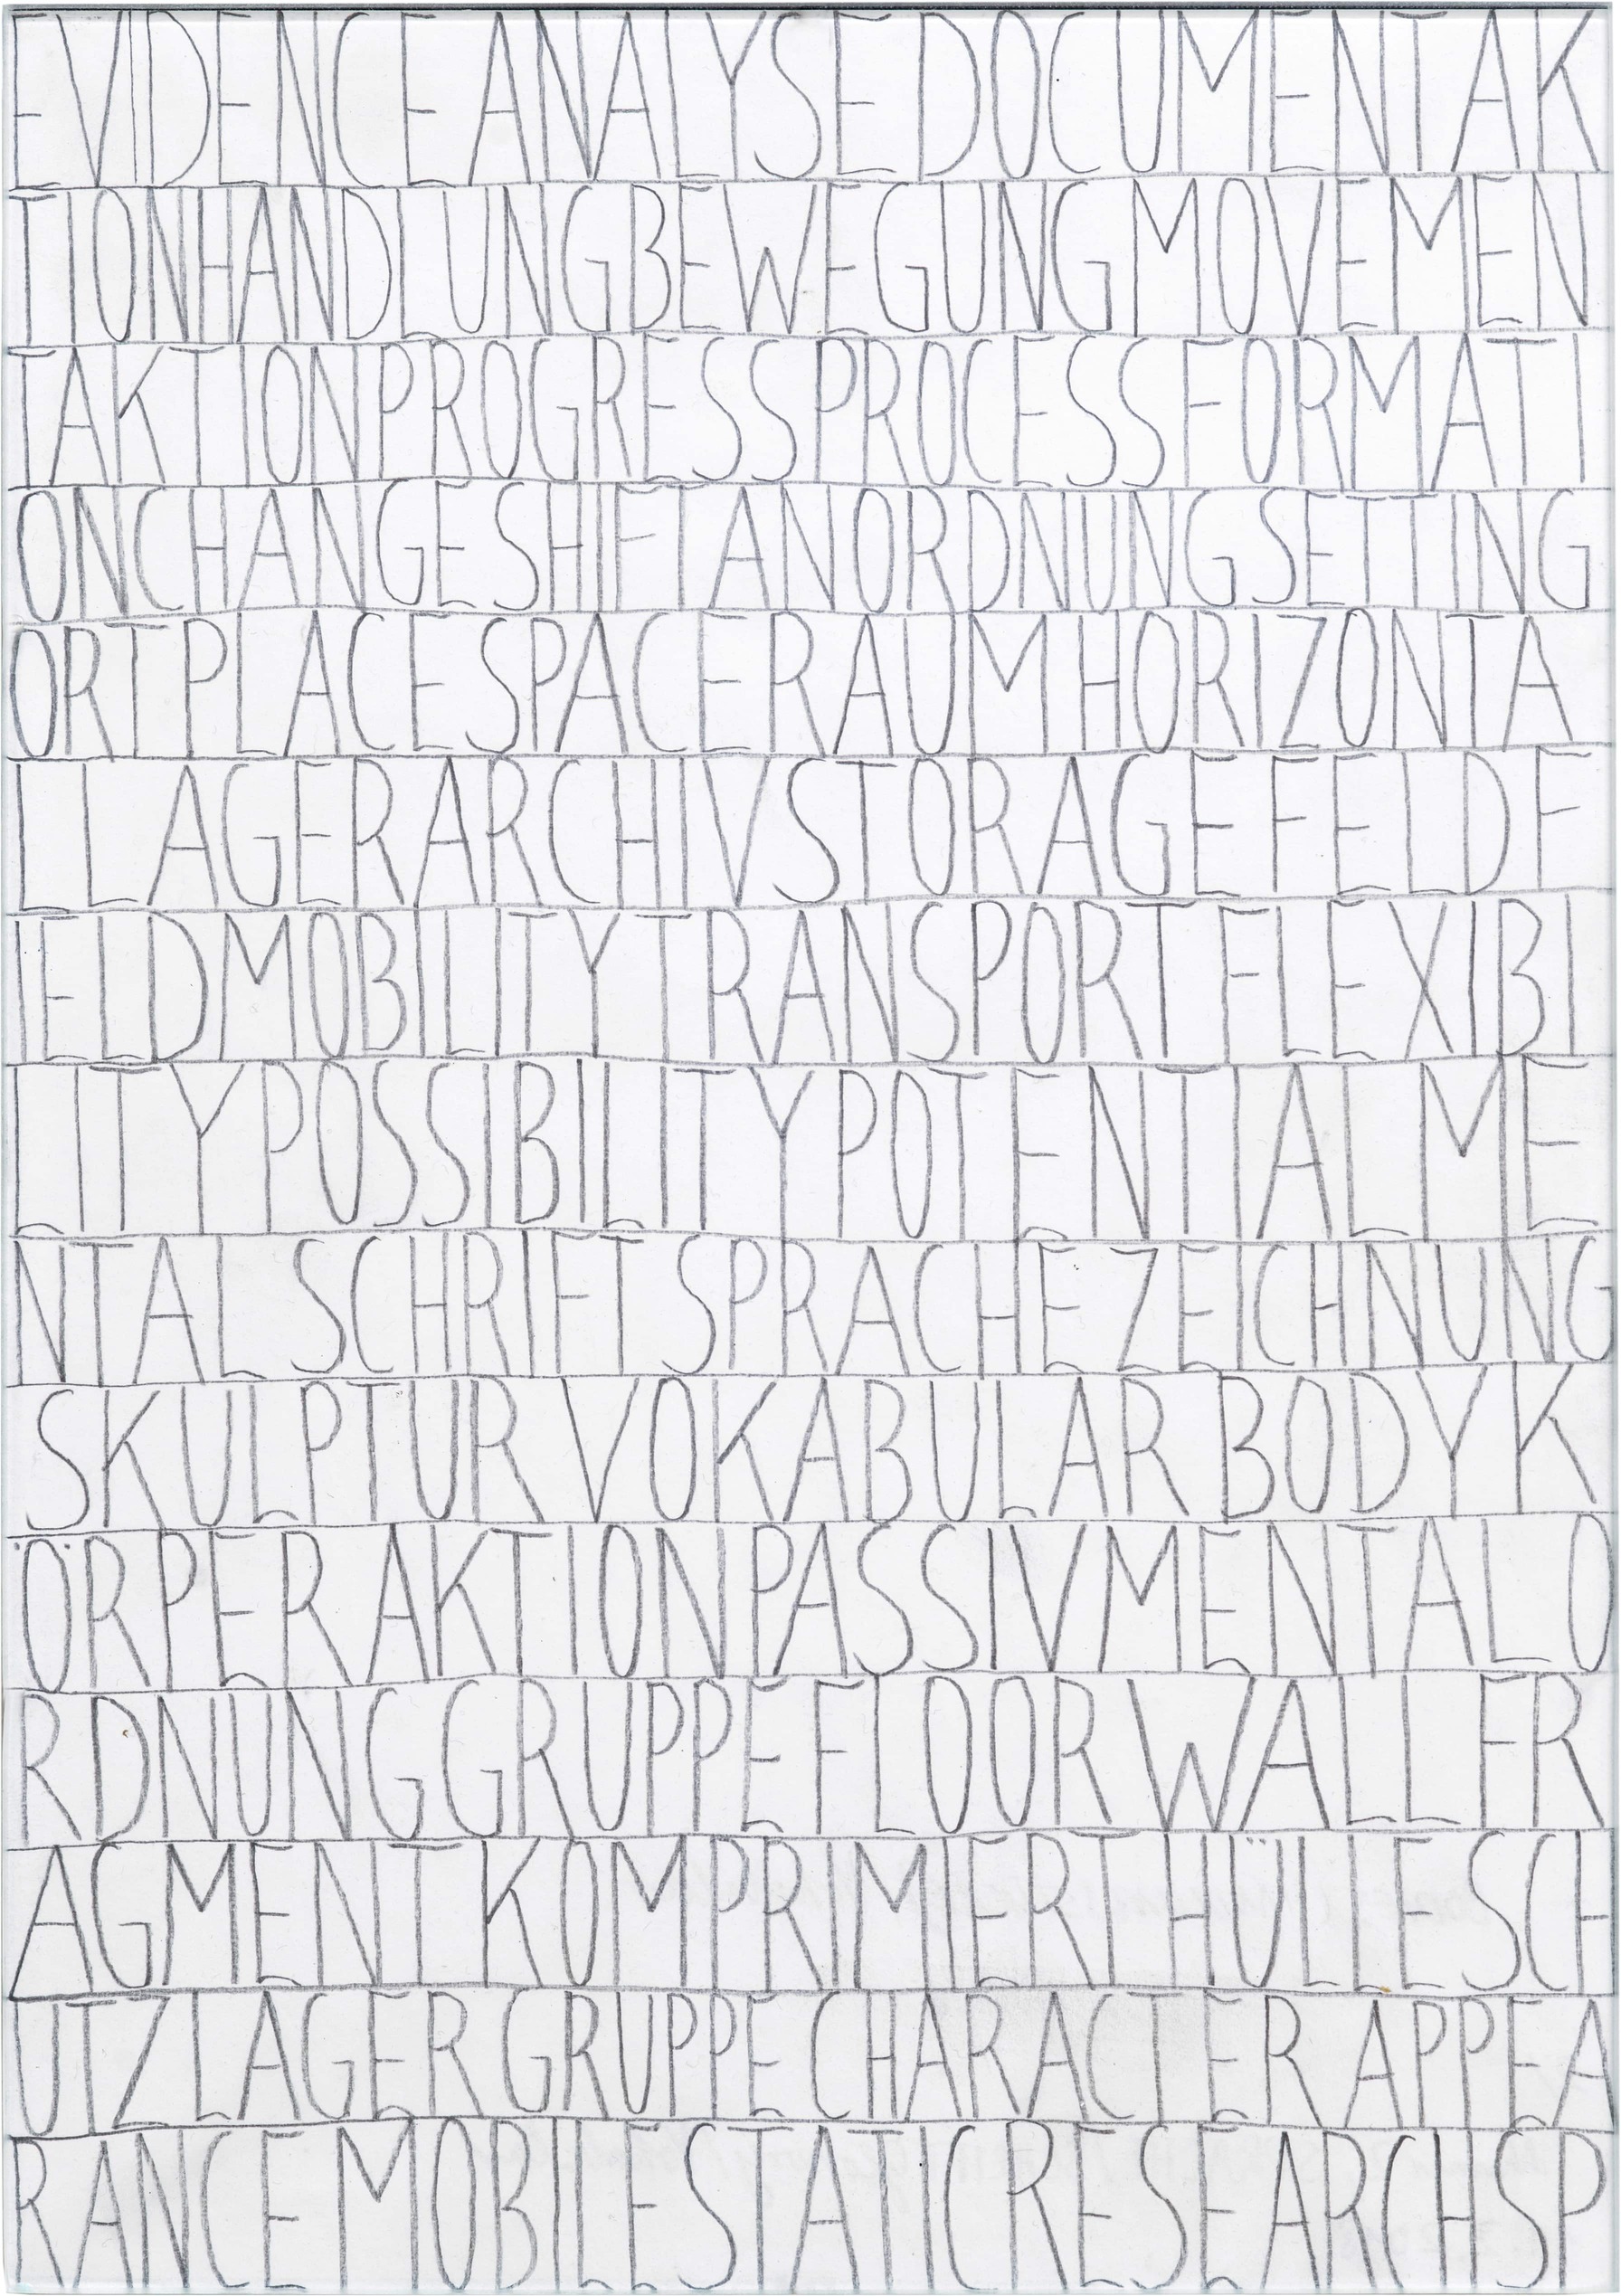 EVIDENCE ANALYSE DOCUMENT AK
TIONHANDLUNG BEWEGUNG MOVEMEN
TAKTION PROGRESS PROCESS FORMATI
ONCHANGE SHIFT ANORDNUNG SETTING
ORT PLACE SPACE RAUM HORIZONTA
LLAGER ARCHIV STORAGE FELD F
IELD MOBILITY TRANSPORT FLEXIBI
LITY POSSIBILITY POTENTIAL ME
NTAL SCHRIFT SPRACHE ZEICHNUNG
SKULPTUR VOKABULAR BODY K
ÖRPER AKTION PASSIV MENTAL O
RDNUNG GRUPPE FLOOR WALL FR
AGMENT KOMPRIMIERT HÜLLE SCH
UTZ LAGER GRUPPE CHARACTER APPEA
RANCE MOBILE STATIC RESEARCH SP